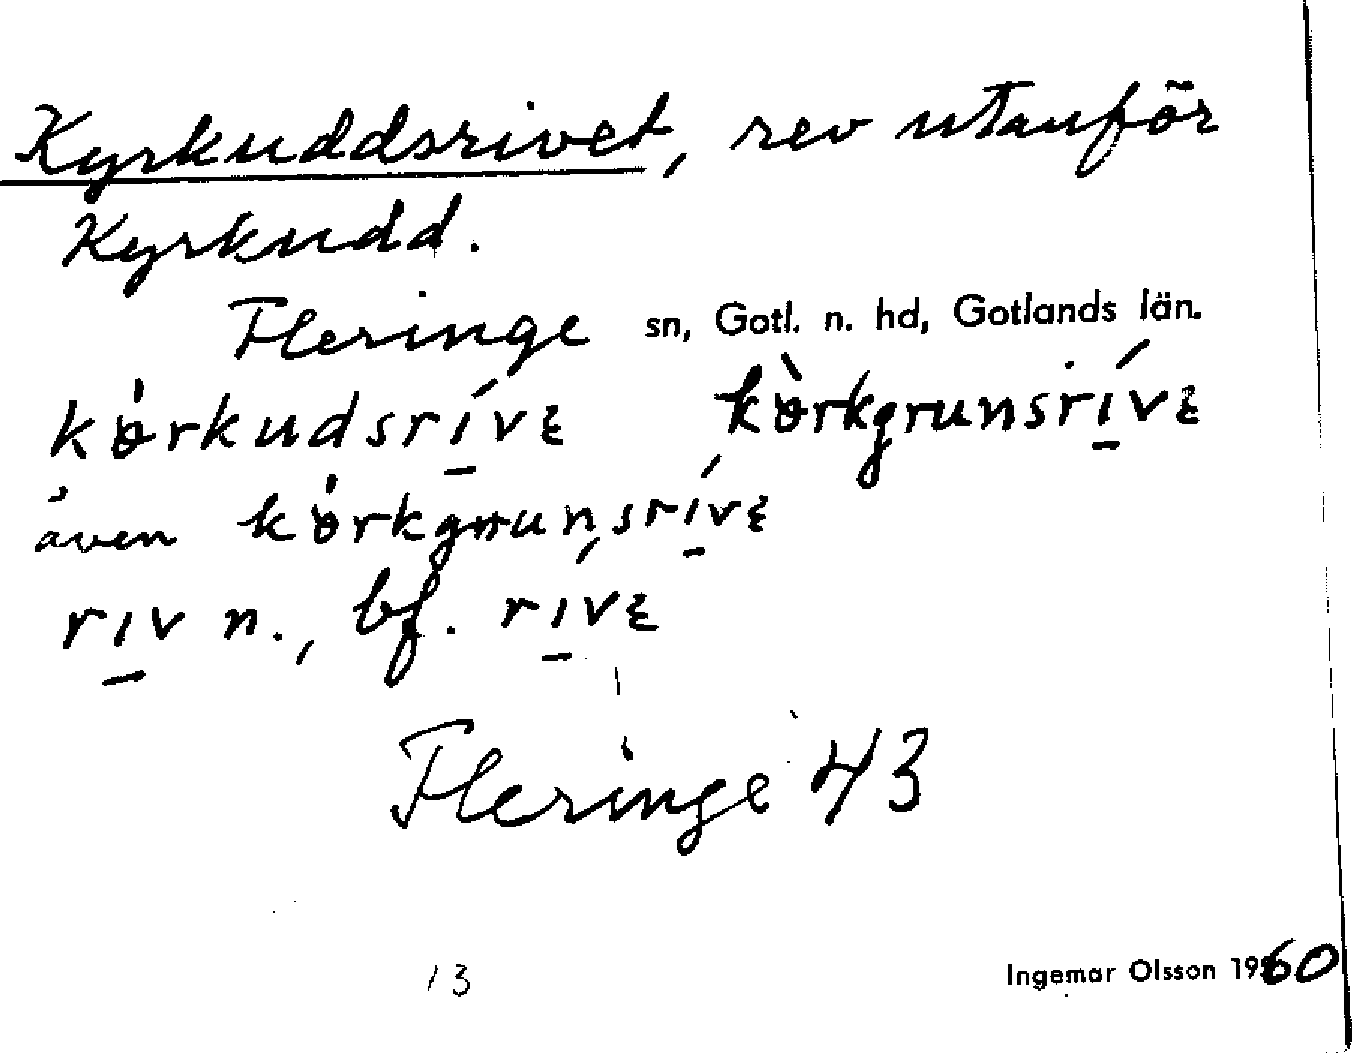 Kyrkuddsrivet, rev utanför
Kyrkudd.
Fleringe sn, Gotl. n. hd, Gotlands län.
kɵ̀rkudsrívɛ kɵ̀rkgrunsrívɛ
även kɵ̀rkgrunsrívɛ
rıv n., bf. rívɛ
Fleringe 43
13
Ingemar Olsson 1960